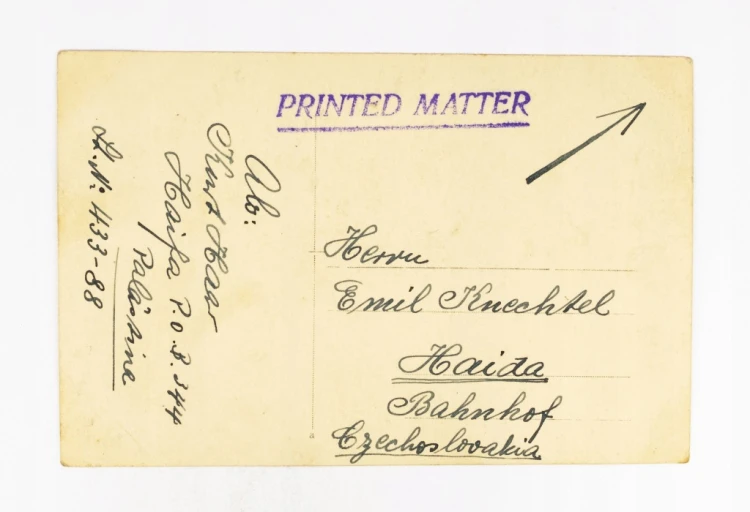 PRINTED MATTER
Ab:
Kurt Haar
Haifa P.O.B. 344
Palästina
Lt. Nr: 433-88
Herrn
Emil Knechtel
Haida
Bahnhof
Czechoslovakia